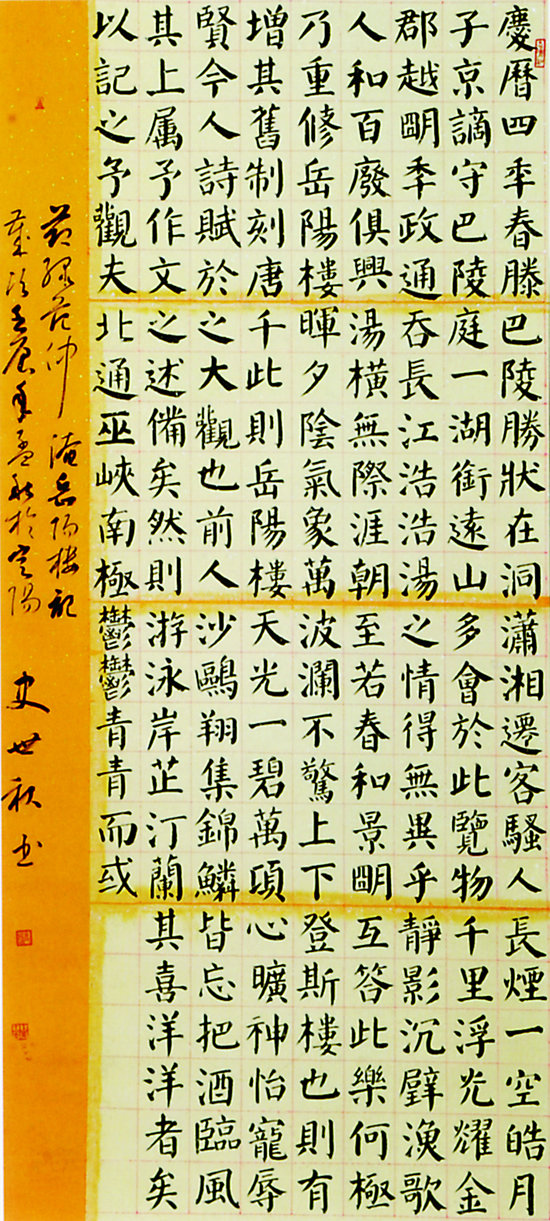 慶曆四年春滕
子京謫守巴陵
郡越明年政通
人和百廢俱興
乃重修岳陽樓
增其舊制刻唐
賢今人詩賦於
其上属予作文
以記之予觀夫
巴陵勝狀在洞
庭一湖銜遠山
吞長江浩浩湯
湯橫無際涯朝
暉夕陰氣象萬
千此則岳陽樓
之大觀也前人
之述備矣然則
北通巫峽南極
瀟湘遷客騷人
多會於此覽物
之情得無異乎
至若春和景明
波瀾不驚上下
天光一碧萬頃
沙鷗翔集錦鱗
游泳岸芷汀蘭
鬱鬱青青而或
長煙一空皓月
千里浮光耀金
靜影沉璧漁歌
互答此樂何極
登斯樓也則有
心曠神怡寵辱
皆忘把酒臨風
其喜洋洋者矣
節録范仲淹岳陽樓記
歲次壬辰年孟秋於宜陽 史世秋书